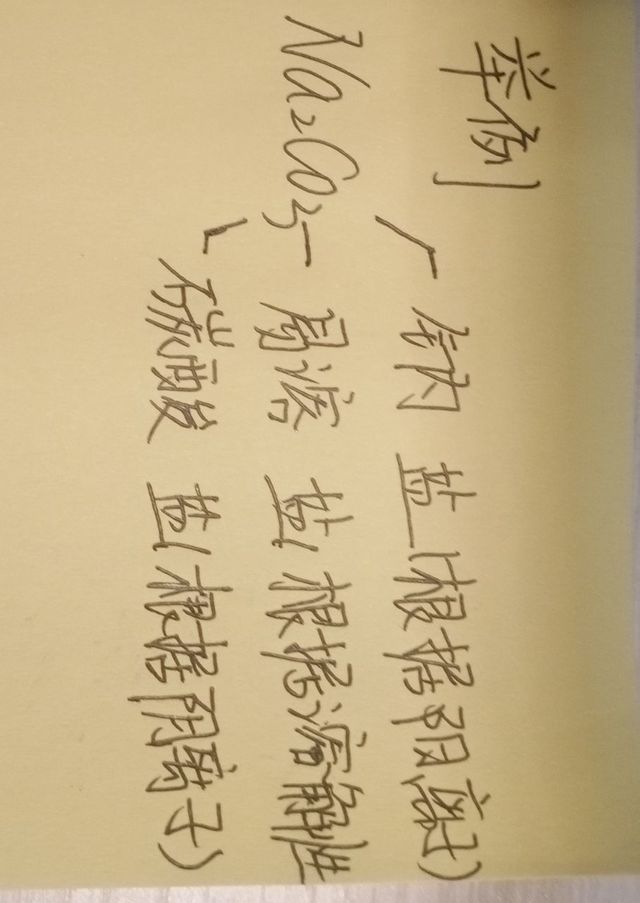 举例
钠 盐(根据阳离子)
Na₂CO₃ — 易溶 盐(根据溶解性
碳酸 盐(根据阴离子)